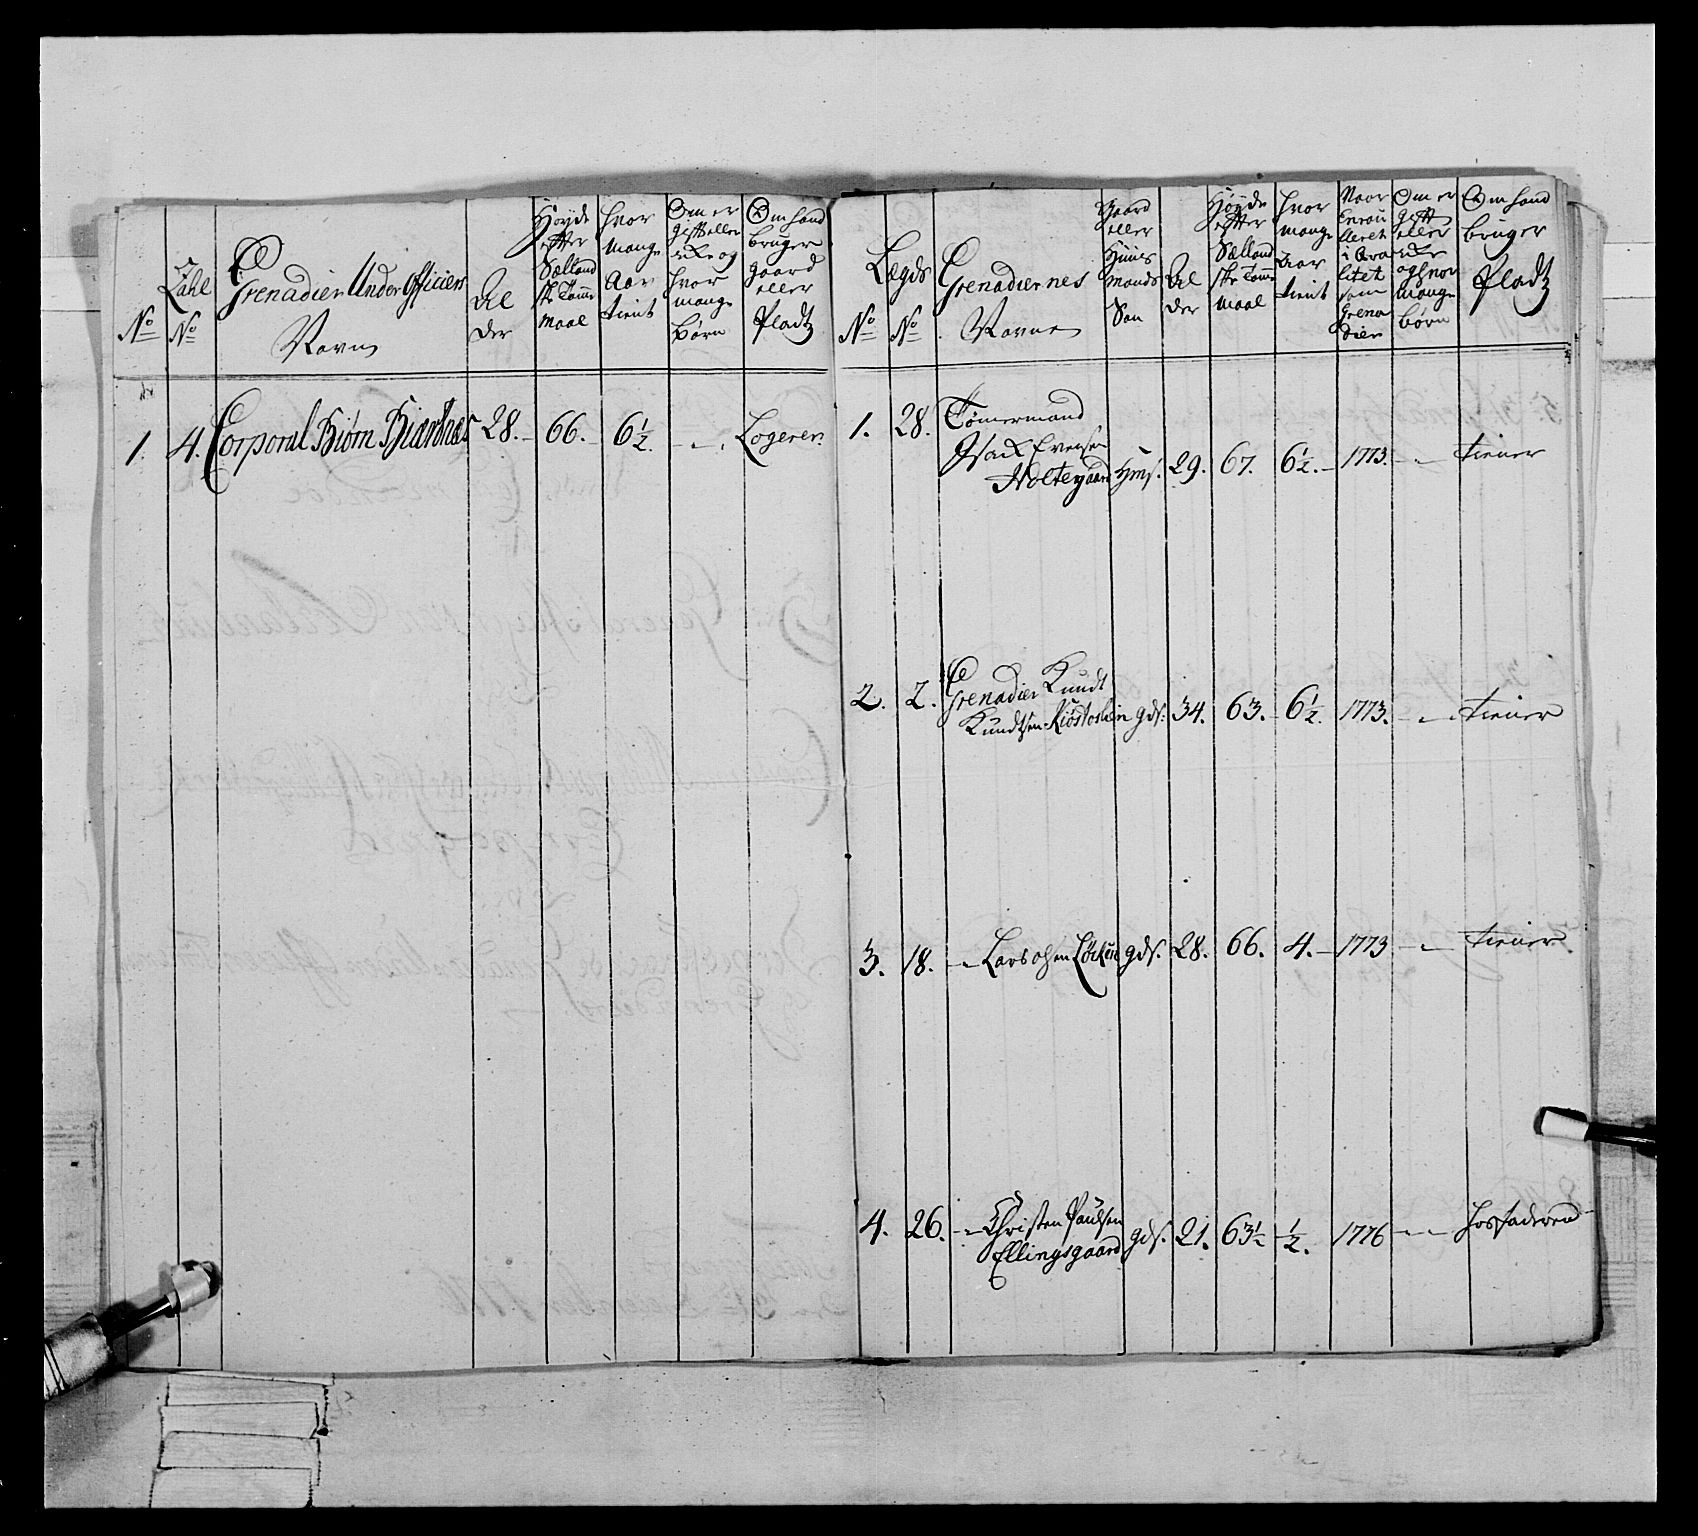 No
Zahl No
Grenadier Under Officiers
Navn
Al
der
Høyde
efter
Sælland
ske Tomme
maal
hvor
mange
Aar
tient
Om er
gift eller
icke og
hvor
mange
børn
Om hand
bruger
gaard
eller
Pladtz
1. 4. Corporal Biørn Biærtnæs 28. 66. 6½. Logerer.
No
Lægds
No
Grenadiernes
Navne
Gaard
eller
Huus
mands
Søn
Al
der
Høyde
efter
Sælland
ske Tomme
maal
hvor
mange
Aar
tient
Naar
leret
litet
som
Grena
dier
Om er
gift
eller
icke
og hvor
mange
børn
Om hand
bruger
Pladtz
1. 28. Tømermand
Isack Evensen
Noltegaard Hms. 29. 67. 6½. 1773. tiener
2. 2. Grenadier Knudt
Knudtsen gds. 34. 63. 6½. 1773. tiener
3. 18. Lars Olsen Løcken gds. 28. 66. 4. 1773 tiener
4. 26. Christen Paulsen
Ellingsgaard gds. 21. 63½ ½. 1776 hos faderen